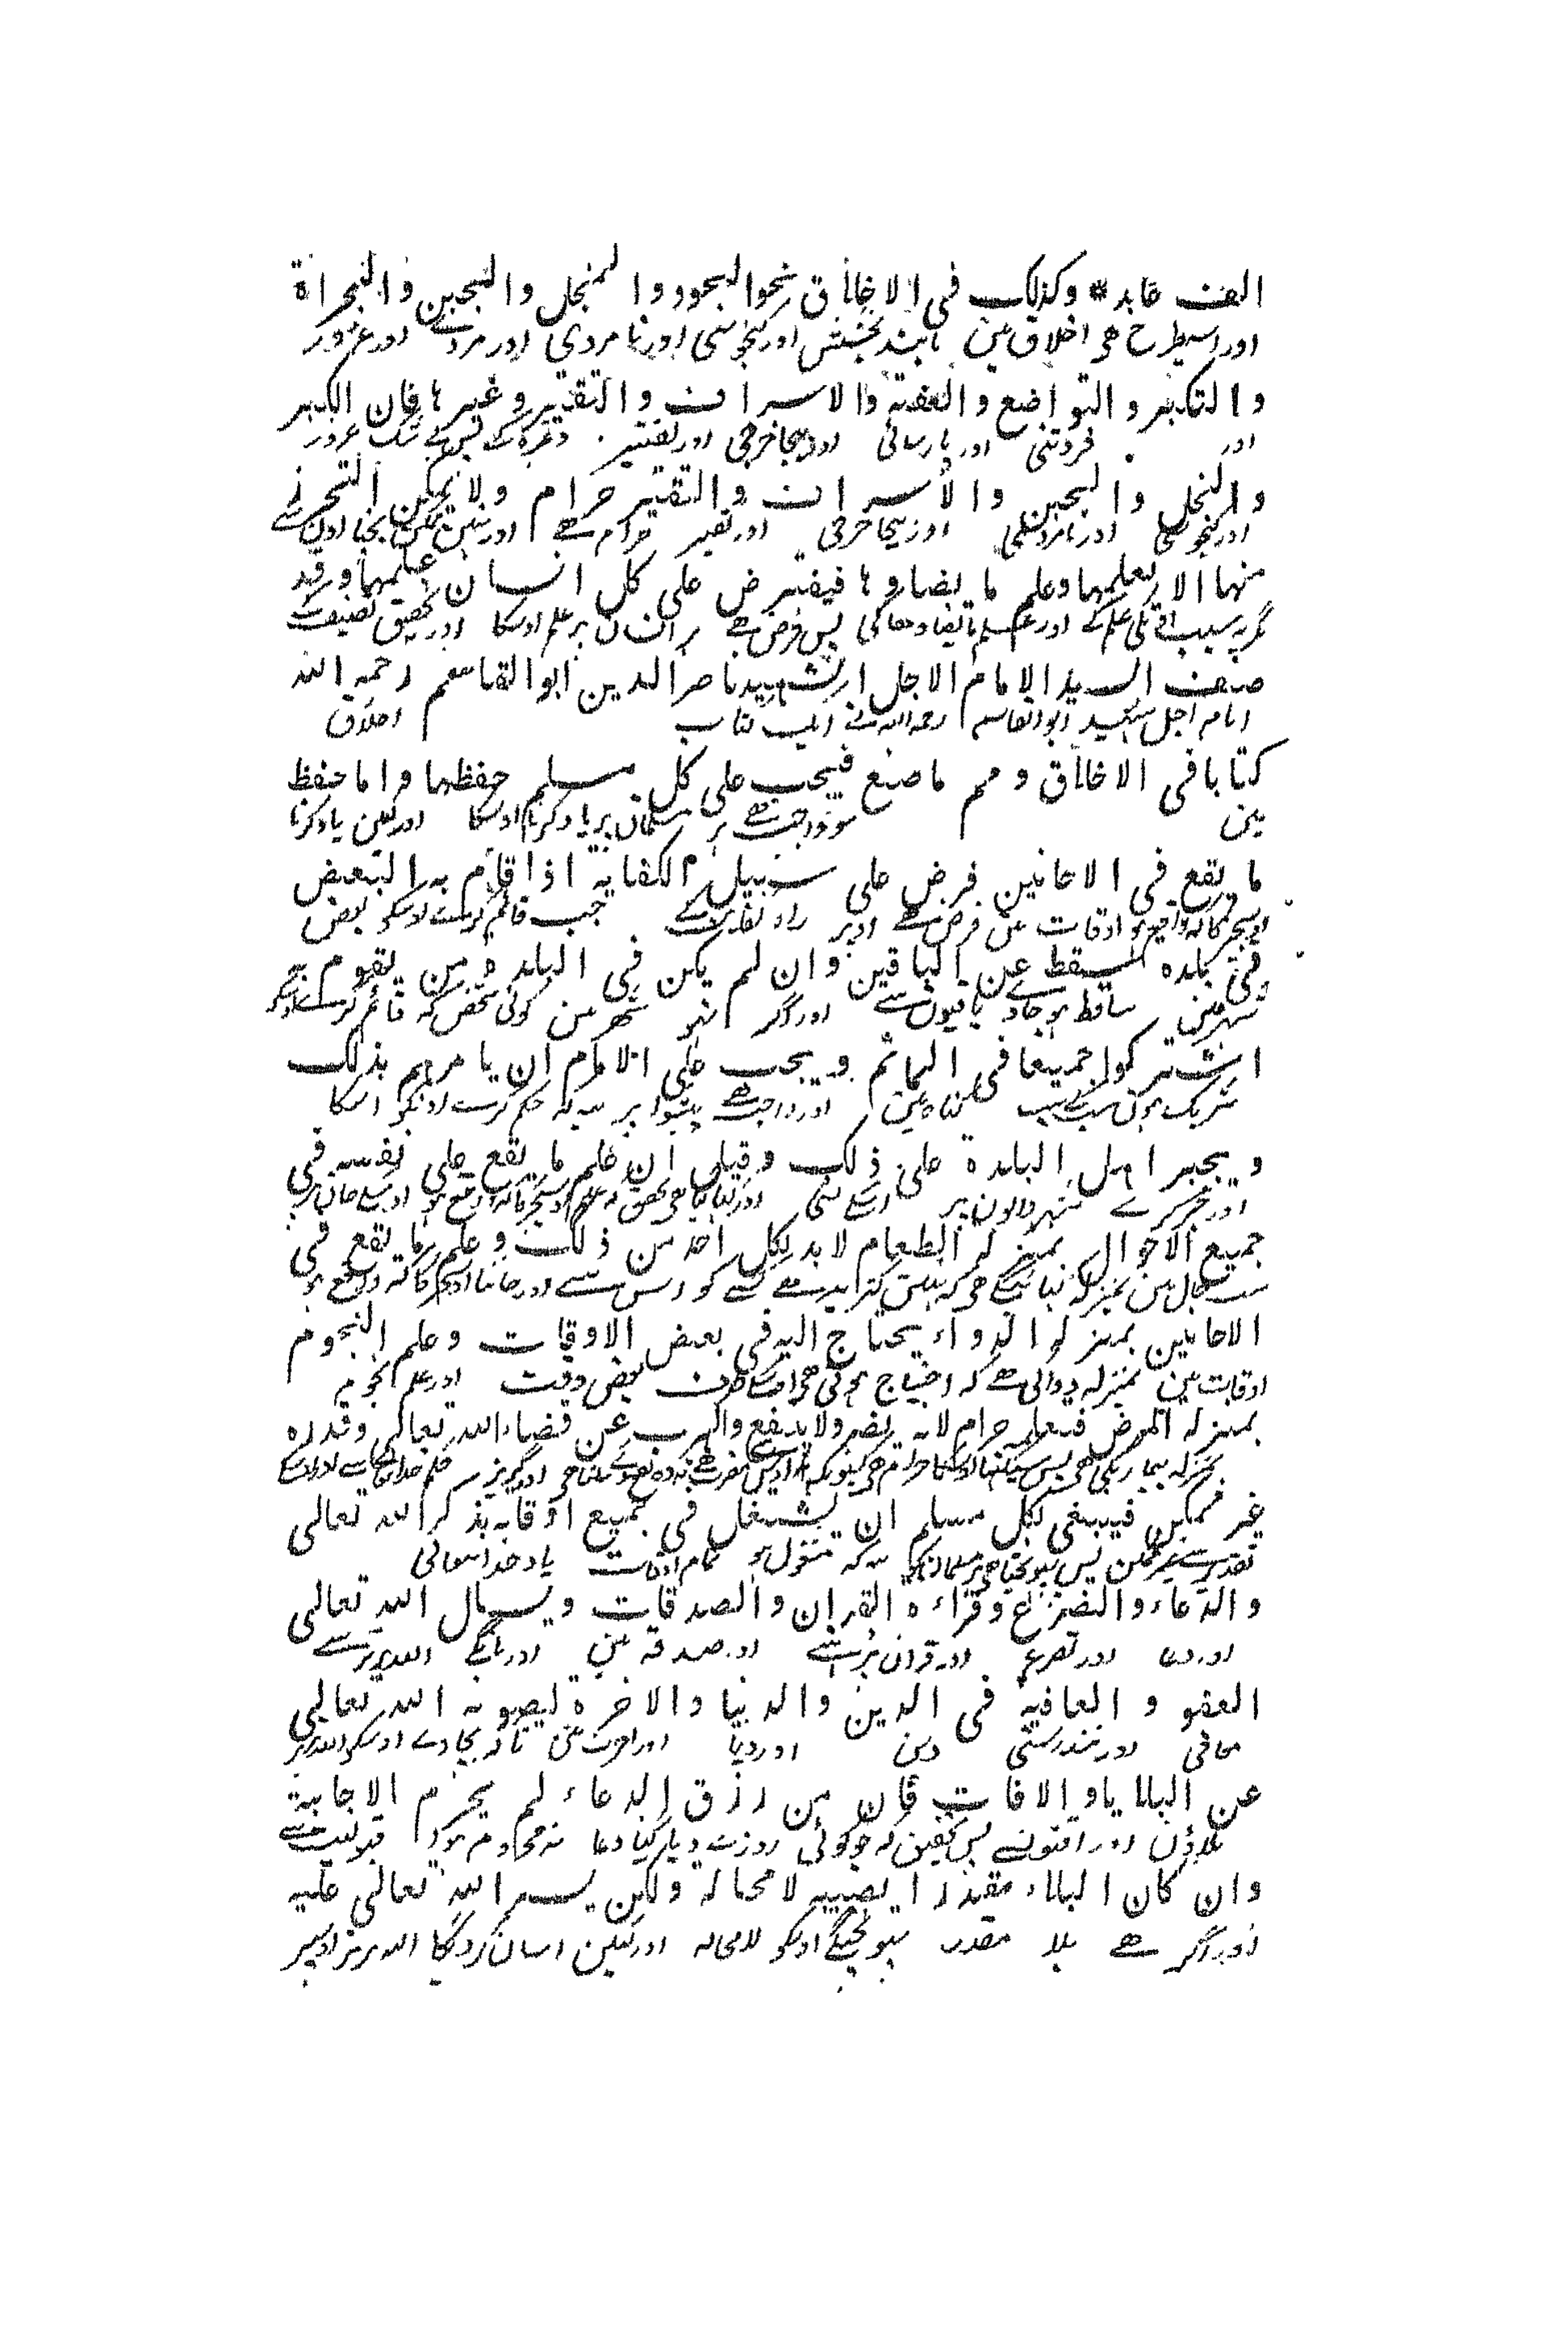 الف عابد * وكذلك في الاخلاق نحو الجود والبخل والجبن والجراة
اور اسیطرح هی اخلاق مین مانند بخشش اور کنجوسی اور نامردی اور مردے اور غرور
والتكبر والتواضع والعفة والاسراف والتقتير وغيرها فان الكبر
اور فروتنی اور پارسائی اور بیجا خرچی اور تقتیر وغیرہ کے پس بے شک غرور
والبخل والجبن والاسراف والتقتير حرام ولا يمكن التحرز
اور کنجوسی اور نامردگی اور بیجا خرچی اور تقتیر حرام هے اور نہین ممکن بچنا اون سے
منها الا بعلمها وعلم ما يضادها فيفترض على كل انسان علمها وقد
مگر بہ سبب علم کے اور علم کی پس فرض هے ہر انسان پر علم اوسکا اور تحقیق تصنیف کی
صنف السيد الامام الاجل الشهيد ناصر الدين ابو القاسم رحمه الله
امام اجل شہید ابو القاسم رحمہ اللہ نے ایک کتاب اخلاق
كتابا في الاخلاق ونعم ما صنع فيجب على كل مسلم حفظها واما حفظ
مین سو واجب هے ہر مسلمان پر یاد کرنا اوسکا اور لیکن یاد کرنا
ما يقع في الاحايين فرض على سبيل الكفاية اذا قام به البعض
اوس چیز کا کہ واقع ہو اوقات مین فرض هے اوپر راہ کفایت کے جب قائم کرے اوسکو بعض
في بلدة يسقط عن الباقين وان لم يكن في البلدة من يقوم به
شہر مین ساقط ہو جاوے باقیون سے اور اگر نہو شہر مین کوئی شخص کہ قائم کرے اوسکو
اشتركوا جميعا في الماثم ويجب على الامام ان يامرهم بذلك
شریک ہون سب کے سب گناہ مین اور واجب هے پیشوا پر یہ کہ حکم کرے اونکو اسکا
ويجبر اهل البلدة على ذلك وقيل ان علم ما يقع على نفسه في
اور جبر کرے شہر والون پر اوسکے اور کہا گیا هی تحقیق کہ علم اوس چیز کا کہ واقع ہو اوسکے جان پر
جميع الاحوال بمنزلة الطعام لا بد لكل احد من ذلك وعلم ما يقع في
سب حال مین بمنزلہ کے هی کہ نہین هے کسے کو اس سے اور جاننا اوس چیز کا کہ واقع ہو
الاحايين بمنزلة الدواء يحتاج اليه في بعض الاوقات وعلم النجوم
اوقات مین بمنزلہ دوا کی هے کہ احتیاج ہوتی هی اوسکے طرف بعض وقت اور علم نجوم
بمنزلة المرض فتعلمه حرام لانه يضر ولا ينفع والهرب عن قضاء الله تعالى وقدره
بمنزلہ بیماریکی هی پس سیکھنا اوسکا حرام هی کیونکہ اور گریز حکم خدا تعالی سے اور اوسکے
غير ممكن فينبغي لكل مسلم ان يشتغل في جميع اوقاته بذكر الله تعالى
تقدیر سے غیر ممکن پس هی ہر مسلمان کو یہ کہ مشغول ہو تمام اوقات یاد خدا تعالی
والدعاء والتضرع وقراءة القران والصدقات ويسال الله تعالى
اور دعا اور تضرع اور قران پڑھنے اور صدقہ مین اور مانگے اللہ برتر سے
العفو والعافية في الدين والدنيا والاخرة ليصونه الله تعالى
معافی اور تندرستی دین اور دنیا اور اخرت مین تاکہ بچاوے اوسکو اللہ برتر
عن البلايا والافات فان من رزق الدعاء لم يحرم الاجابة
بلاؤن اور افتون سے پس تحقیق کہ جو کوئی روزے دیا گیا دعا نہ محروم ہوا قبولیت سے
وان كان البلاء مقدرا يصيبه لا محالة ولكن ييسر الله تعالى عليه
اور اگر هے بلا مقدر پہونچیگے اوسکو لا محالہ اور لیکن اسان کردیگا اللہ برتر اوسپر